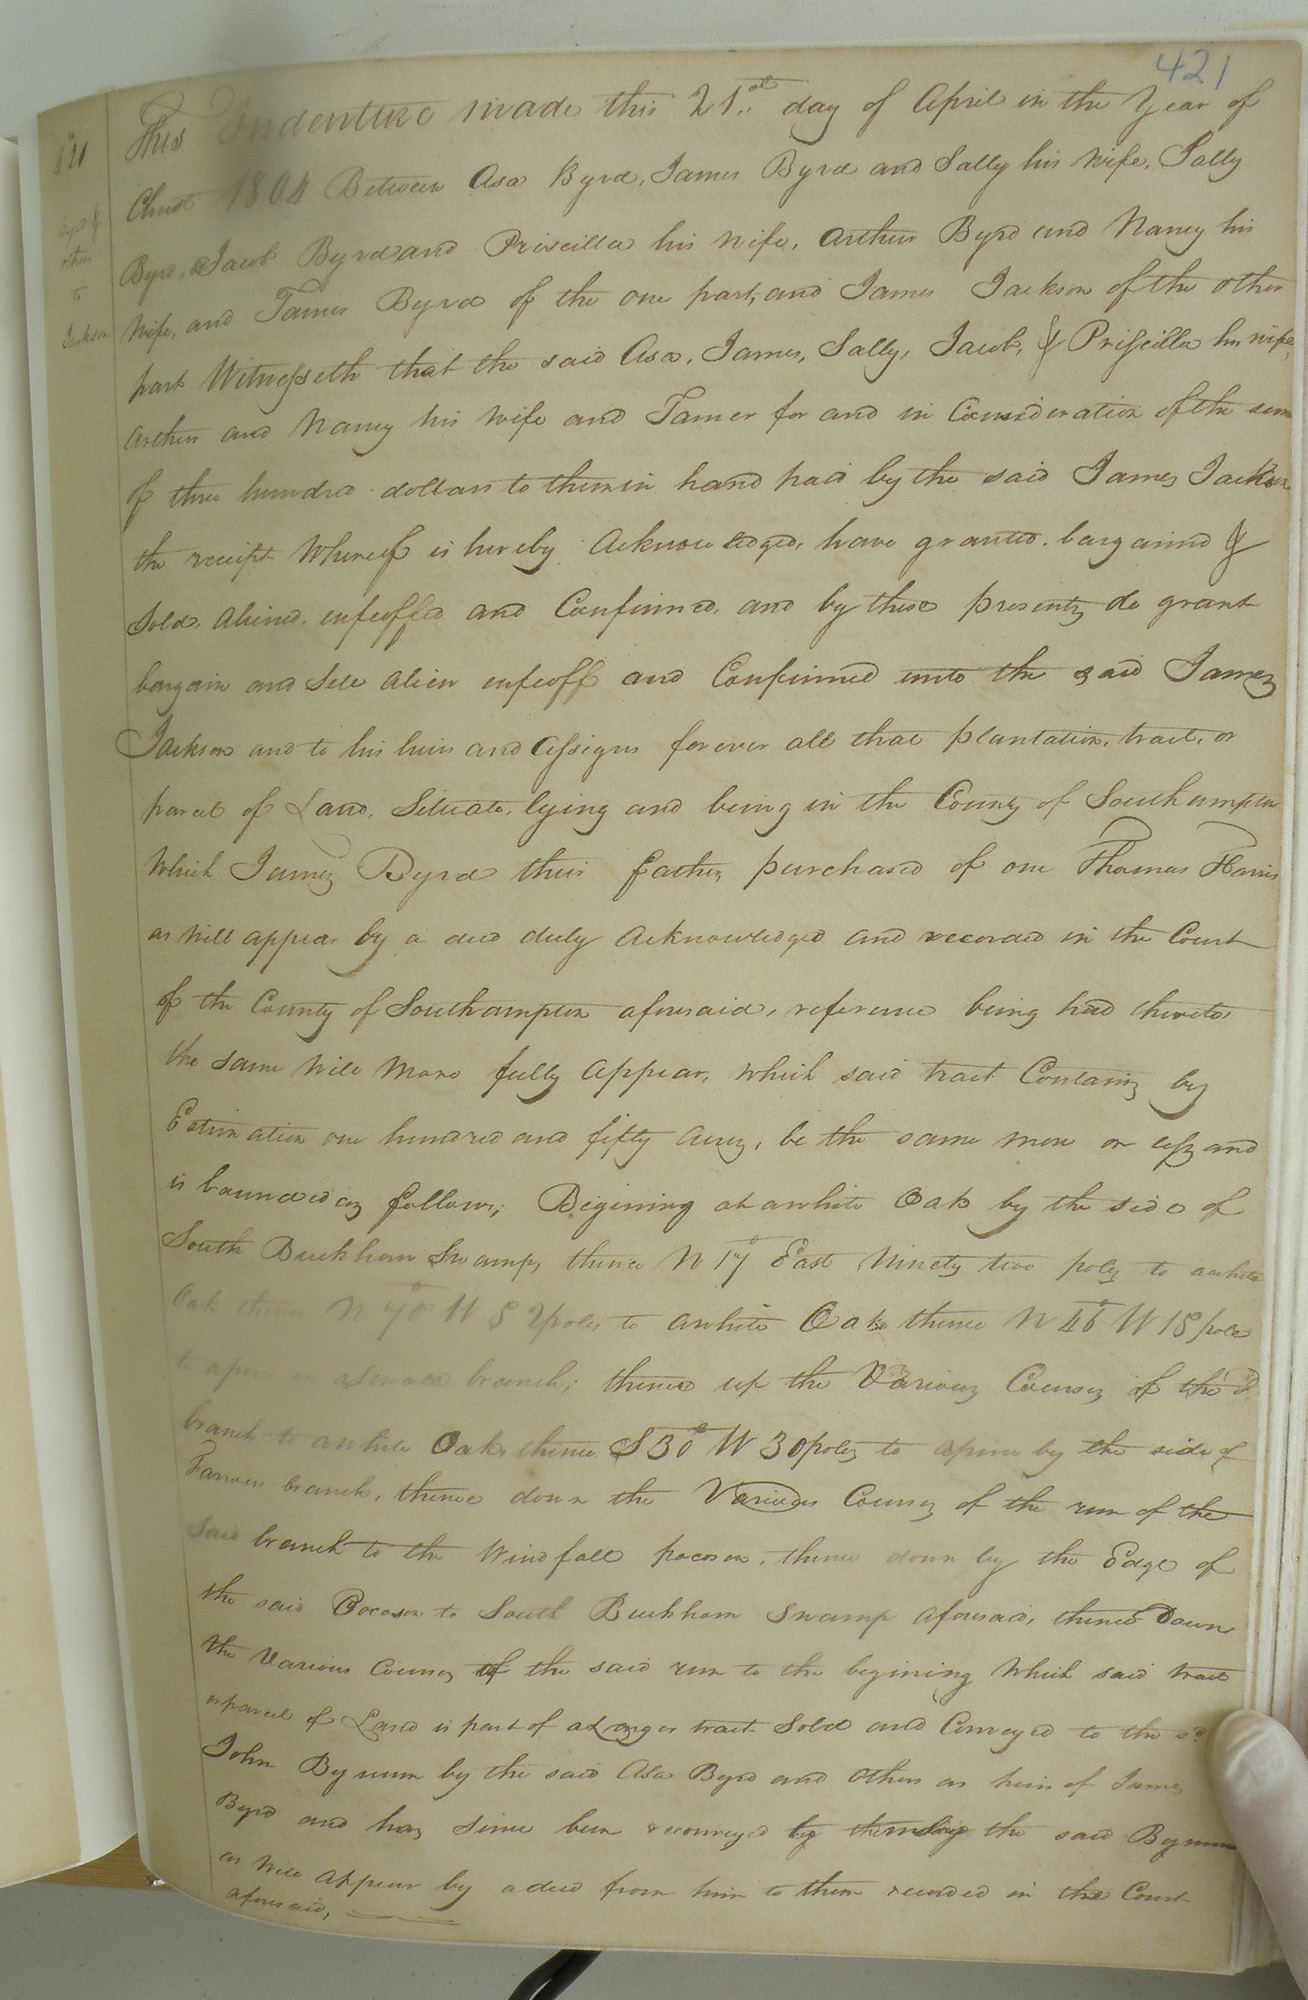 421
421
Byrd &
others
to
Jackson
This Indenture made this 21.st day of April in the Year of
Christ 1804 Between Asa Byrd, James Byrd and Sally his Wife, Sally
Byrd, Jacob Byrd and Priscilla his Wife, Arthur Byrd and Nancy his
Wife, and Tamer Byrd of the one part, and James Jackson of the other
part Witnesseth that the said Asa, James, Sally, Jacob, & Prisscilla his wife,
Arthur and Nancy his Wife and Tamer for and in Consideration of the sum
of three hundred dollars to them in hand paid by the said James Jackson
the receipt Whereof is hereby Acknowledged, have granted, bargained &
Sold, Aliened, enfeoffed and Confirmed, and by these presents do grant
bargain and Sell Alien enfeoff and Confirmed unto the said James
Jackson and to his heirs and Assigns forever all that plantation, tract, or
parcel of Land, Situate, lying and being in the County of Southampton
Which James Byrd their father, purchased of one Thomas Harris
as Will appear by a deed duly Acknowledged and recorded in the Court
of the County of Southampton aforesaid, reference being had thereto
the same Will More fully Appear, Which said tract Contains by
Estimation one hundred and fifty Acres, be the same more or less and
is bounded as follows; Begining at a white Oak by the side of
South Buckhorn Swamp, thence N 17° East Ninety two poles to a white
Oak thence N 70° W 52 poles to a white Oak thence N 46° W 18 pole
to a pine in a Small branch; thence up the Various Courses of the sd.
branch to a white Oak thence S 30° W 30 poles to a pine by the side of
Tarrows branch, thence down the Various Courses of the run of the
Said branch to the Windfall pocoson, thence down by the Edge of
the said Pocoson to South Buckhorn Swamp aforesaid, thence Down
the Various Courses of the said run to the begining Which said tract
or parcel of Land is part of a Larger tract Sold and Conveyed to the sd
John Bynum by the said Asa Byrd and others as heirs of James
Byrd and has since been reconveyed by the said Bynum
as Will Appear by a deed from him to them recorded in the Court
aforesaid,